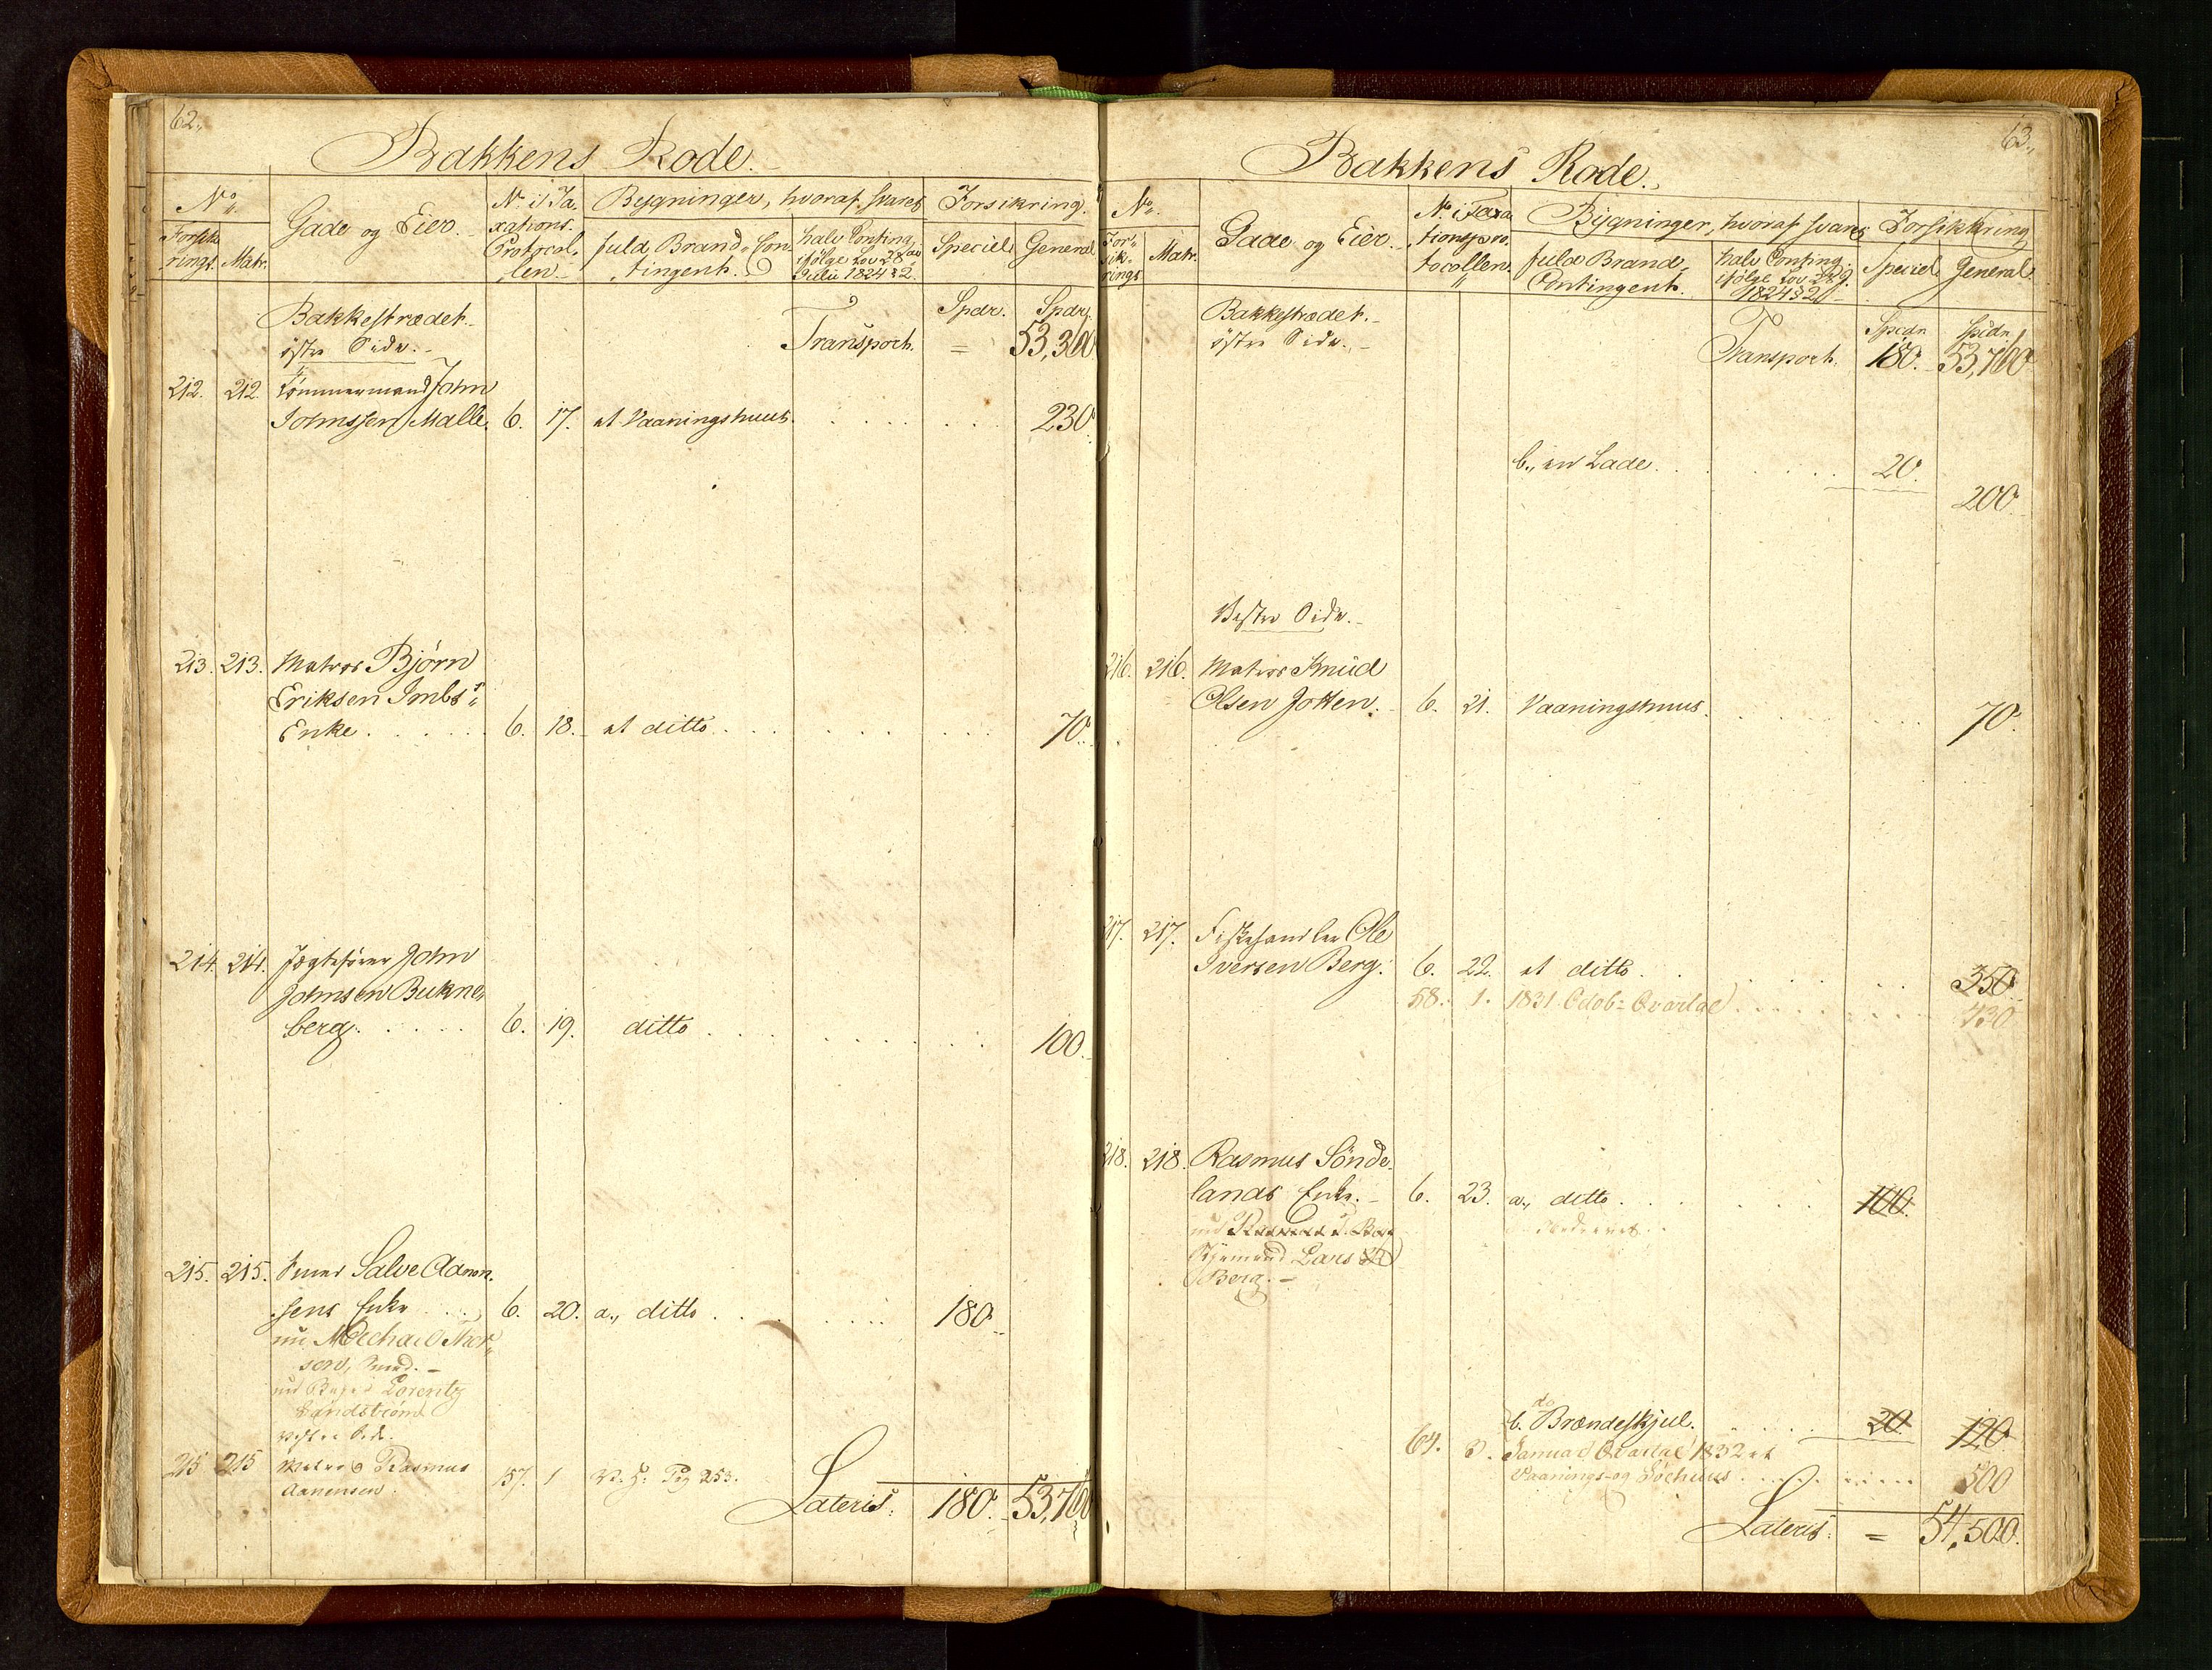 62.
Bakkens Rode.
No.
Forsik-
rings.
Matr.
Gade og Eier.
No. i Ta-
xations-
Protocol-
len.
Bygninger, hvoraf svares
fuld Brand-Con-
tingent.
halv Conting.
ifølge Lov 28de
Julii 1824 § 2.
Forsikring.
Speciel.
General.
Bakkestrædet.
østre Side.
Transport.
Spdr.
Spdr.
= 53,300
212. 212. Tømmermand John
Johnssen Malle. 6. 17. et Vaaningshuus. 230.
213. 213. Matros Bjørn
Eriksen Imbs
Enke 6. 18. et ditto 70.
214. 214. Jægtefører John
Johnsen Bukne-
berg. 6. 19. ditto 100.
215. 215. Smed Salve Aanen-
sens Enke 6. 20. a., ditto 180.
nu Mechael Thor-
sen, Smed.
nu Lorentz
Landstrøm
215 215 Matros Rasmus
Aanensen. 157. 1 V. H. Pag 253.
Lateris. 180. 53,700
63.
Bakkens Rode.
No.
For-
sik-
rings
Matr.
Gade og Eier.
No. i Taxa-
tionspro-
tocollen.
Bygninger, hvoraf svares
fuld Brand-
Contingent.
halv Conting.
ifølge Lov
1824 § 2
Forsikkring
Speciel.
General.
Bakkestrædet.
østre Side.
Spdr.
Spdr.
Transport. 180. 53,700
b., en Lade. 20.
200.
Vestre Side.
216. 216. Matros Knud
Olsen Jotten. 6. 21. Vaaningshuus. 70.
217. 217. Fiskehandler Ole
Iversen Berg. 6. 22. et ditto. 350.
58. 1. 1831 Octob: Qvartal 430
218. 218. Rasmus Sønde-
lands Enke. 6. 23. a., ditto. 100.
nu
Styrmand Lars
Berg.
do
b. Brændeskjul. 20. 120.
64. 3. Januar Qvartal 1832 et
Vaanings- og Søehuus 500
Lateris. = 54,500.